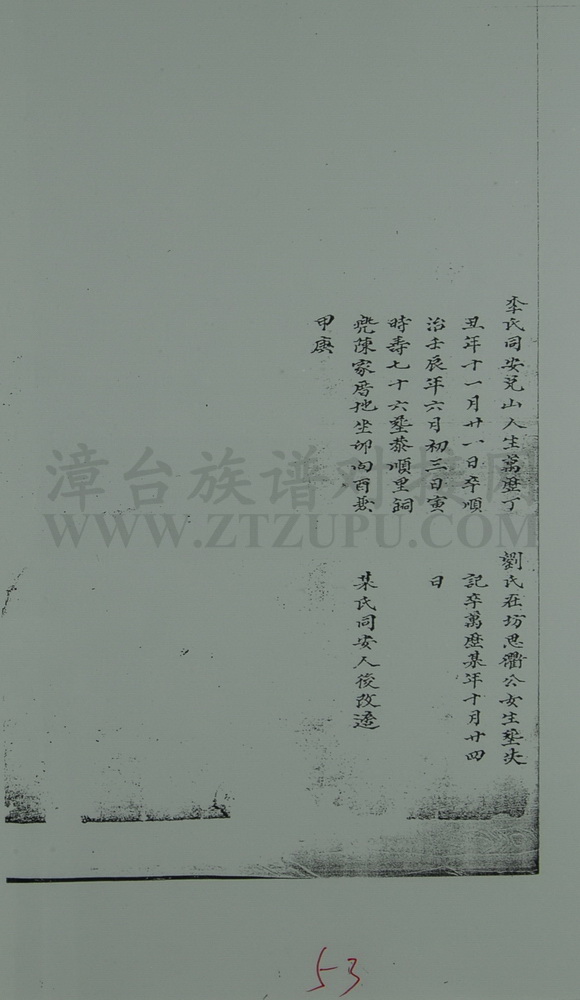 李氏同安兌山人生萬曆丁
丑年十一月廿一日卒順
治壬辰年六月初三日寅
時壽七十六塟恭順里詞
兜陳家厝地坐卯向酉兼
甲庚
劉氏在坊思衢公女生塟失
記卒萬曆某年十月廿四
日
某氏同安人後改适
漳台族谱对接网
WWW.ZTZUPU.COM
53